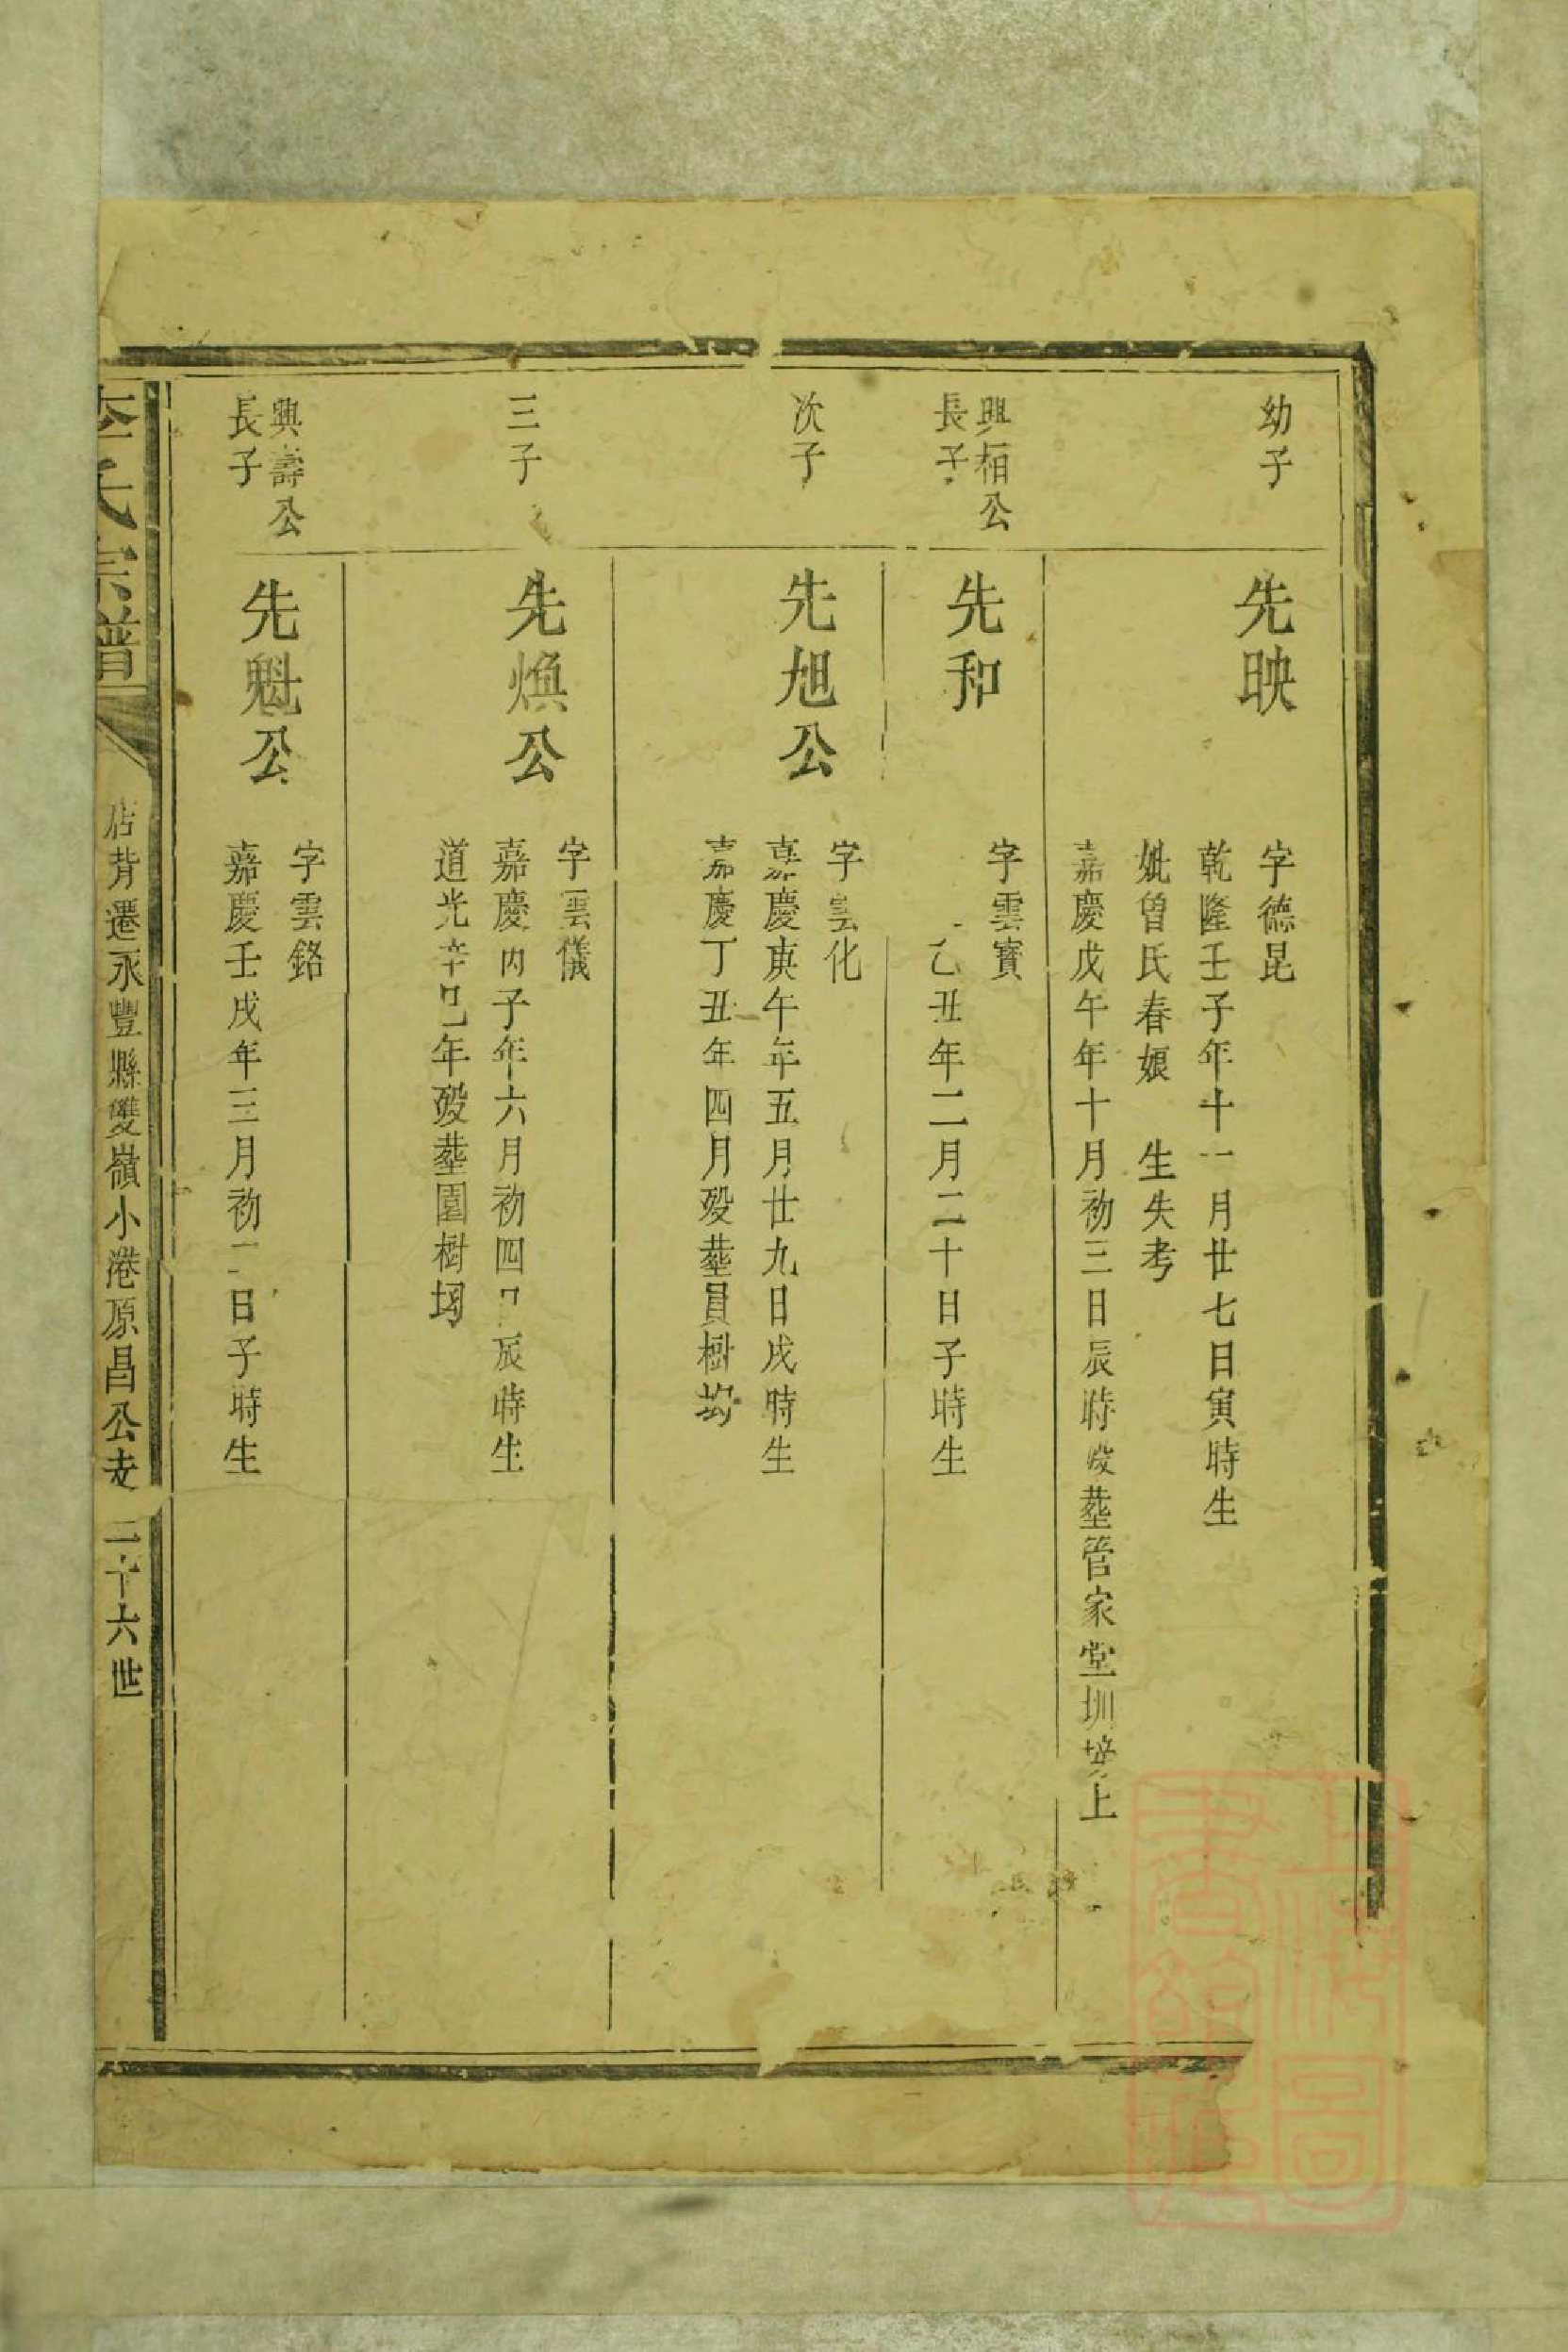 幼子
先映
字德昆
乾隆壬子年十一月廿七日寅時生
妣曾氏春娘　生失考
嘉慶戊午年十月初三日辰時歿塟管家堂圳塝上
興栢公
長子
先和
字雲寳
乙丑年二月二十日子時生
次子
先旭公
字雲化
嘉慶庚午年五月廿九日戌時生
嘉慶丁丑年四月歿塟員樹坳
三子
先煥公
字雲儀
嘉慶丙子年六月初四日辰時生
道光辛巳年歿塟園樹坳
興壽公
長子
先魁公
字雲銘
嘉慶壬戌年三月初二日子時生
李氏宗譜
店背遷永豐縣雙嶺小港原昌公支
二十六世
上海圖
書館藏